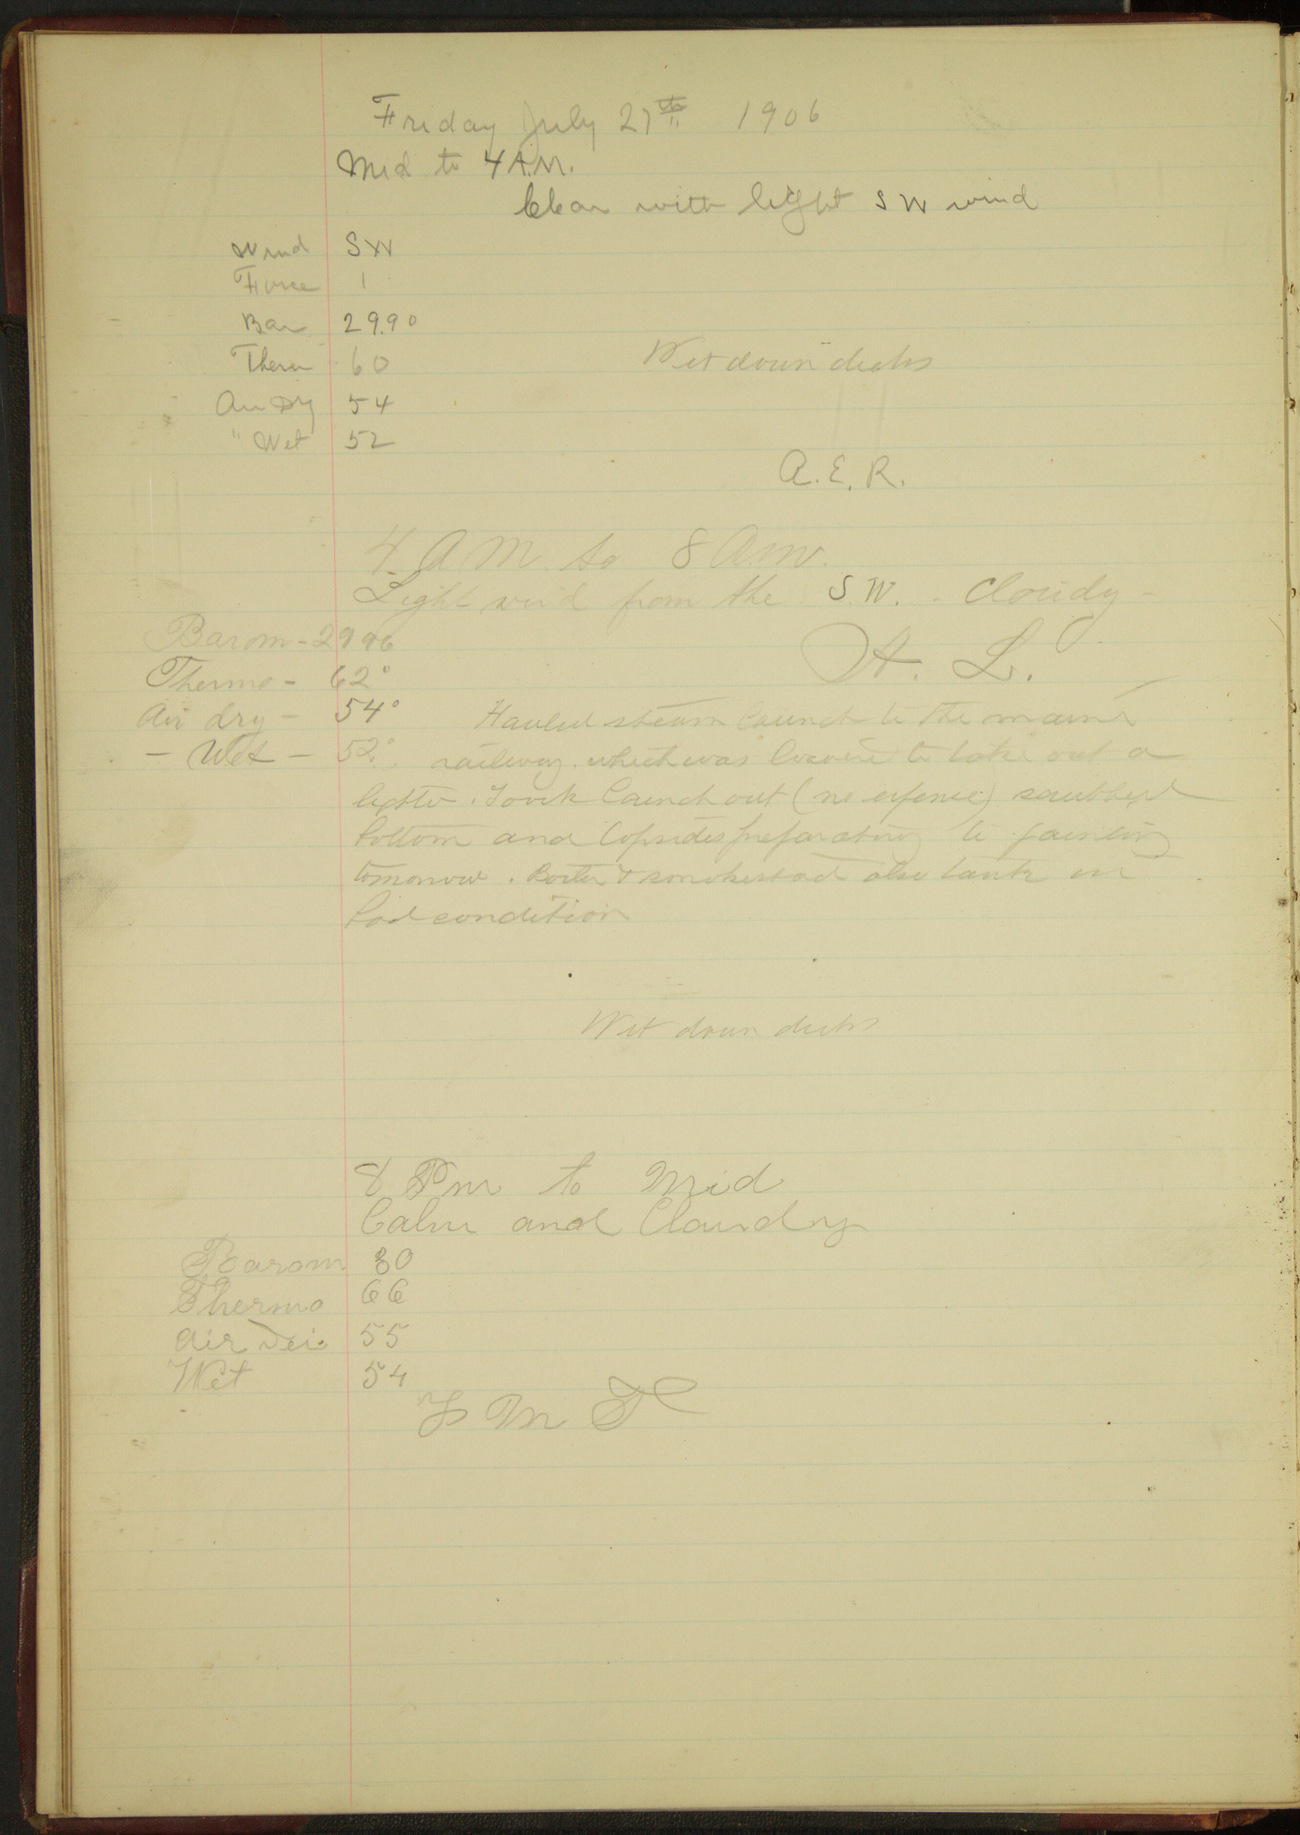 Friday July 27th 1906
Mid to 4 A.M.
Clear with light SW wind
Wind SW
Force 1
Bar 29.90
Ther 60
Wet down decks
Air Dry 54
" Wet 52
A. E. R.
4. A M. to 8 A.m.
Light wind from the S. W. - Cloudy -
Barom - 29 96
A. L.
Thermo - 62°
Air dry - 54° Hauled steam launch to the marine
- Wet - 52° railway. which was to take out a
lighter. Took launch out (no expense) scrubbed
bottom and topsides preparatory to painting
tomorrow. Boiler & smokestack also tank in
bad condition
Wet down decks
8 Pm to Mid
Calm and Cloudy
Barom 30
Thermo 66
Air Dri. 55
Wet 54